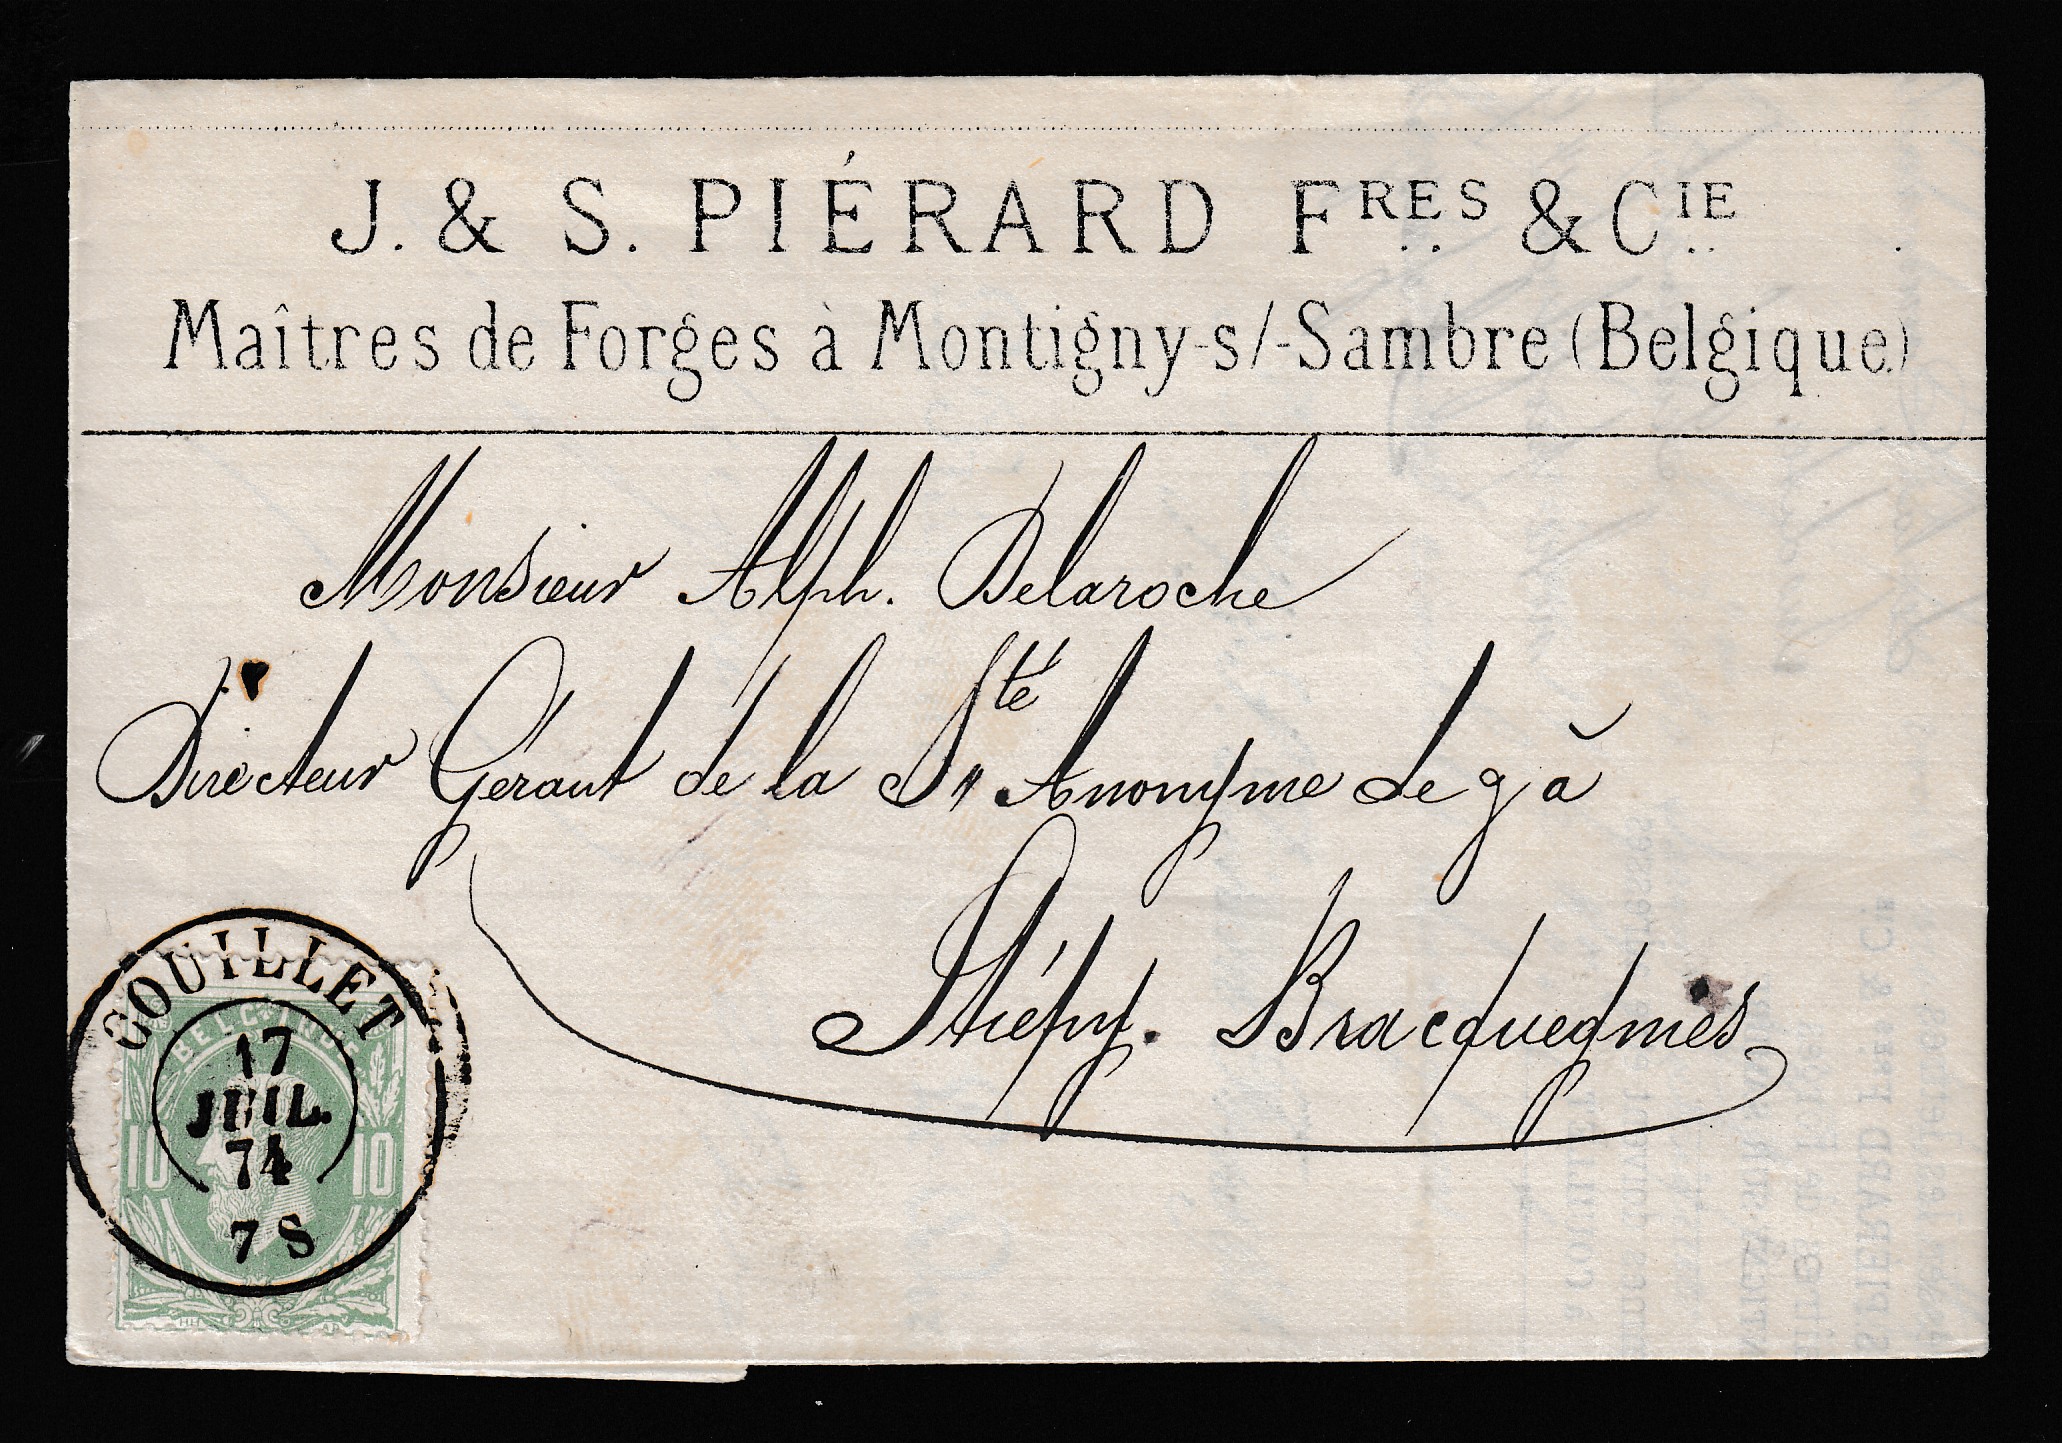 J. & S. PIÉRARD FRES & CIE
Maîtres de Forges à Montigny-s/-Sambre (Belgique)
Monsieur Alph. Delaroche
Directeur Gérant de la Sté Anonyme de g à
Strépy. Bracquegnies
COUILLET
17
JUIL.
74
7 S
BELGIQUE
10 10